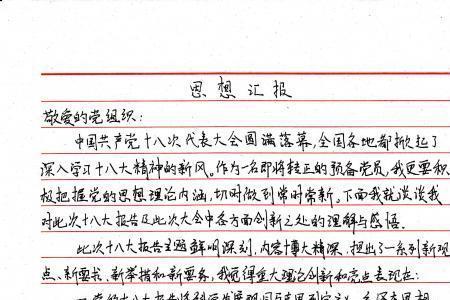 思想汇报
敬爱的党组织：
中国共产党十八次代表大会圆满落幕，全国各地都掀起了
深入学习十八大精神的新风。作为一名即将转正的预备党员，我更要积
极把握党的思想理论内涵，切时做到常时常新。下面我就谈谈我
对此次十八大报告及此次大会中各方面创新之处的理解与感悟。
此次十八大报告主题鲜明深刻，内容博大精深，提出了一系列新观
点、新要求、新举措和新要务，我觉得重大理论创新和亮点表现在：